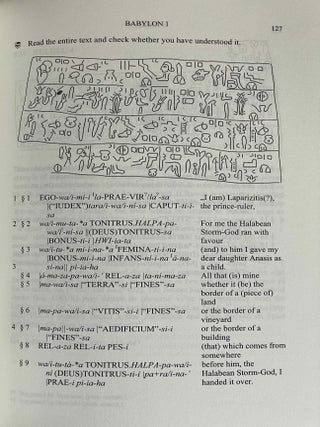 BABYLON 1
127
Read the entire text and check whether you have understood it.
1 § 1 EGO-wa/i-mi-i
(|"IUDEX")tara/i-wa/i-ni-sa |CAPUT-ti-i-
sa-
...I (am) Laparizitis(?),
the prince-ruler.
2 § 2 wa/i-mu-ta-*a TONITRUS.HALPA-pa-
wa/i-ni-sa |(DEUS)TONITRUS-sa
|BONUS-ti-i | HWI-ia-ta
For me the Halabean
Storm-God ran with
favour
§ 3 wa/i-tu-*a FEMINA-ti-i-na
|BONUS-mi-i-na |INFANS-ni-i-na
3 pi-ia-ha
(and) to him I gave my
dear daughter Anasis as
a child.
§ 4 REL-a-za |ta-ni-ma-za
All that (is) mine
§ 5 |ma-wa/i-sa |"TERRA"-si-i |"FINES"-
sa
whether it (be) the
border of a (piece of)
land
§ 6 |ma-pa-wa/i-sa |"VITIS"-si-i |"FINES"-
sa
or the border of a
vineyard
4 § 7 |ma-pa||-wa/i-sa |"AEDIFICIUM"-si-i
|"FINES"-sa
or the border of a
building
§ 8 REL-a-za REL-i-ta PES-i
(that) which comes from
somewhere
§ 9 wa/i-tu-tá-*a TONITRUS.HALPA-pa-wa/i-
ni (DEUS)TONITRUS-ti-i
|PRAE-i pi-ia-ha
before him, the
Halabean Storm-God, I
handed it over.